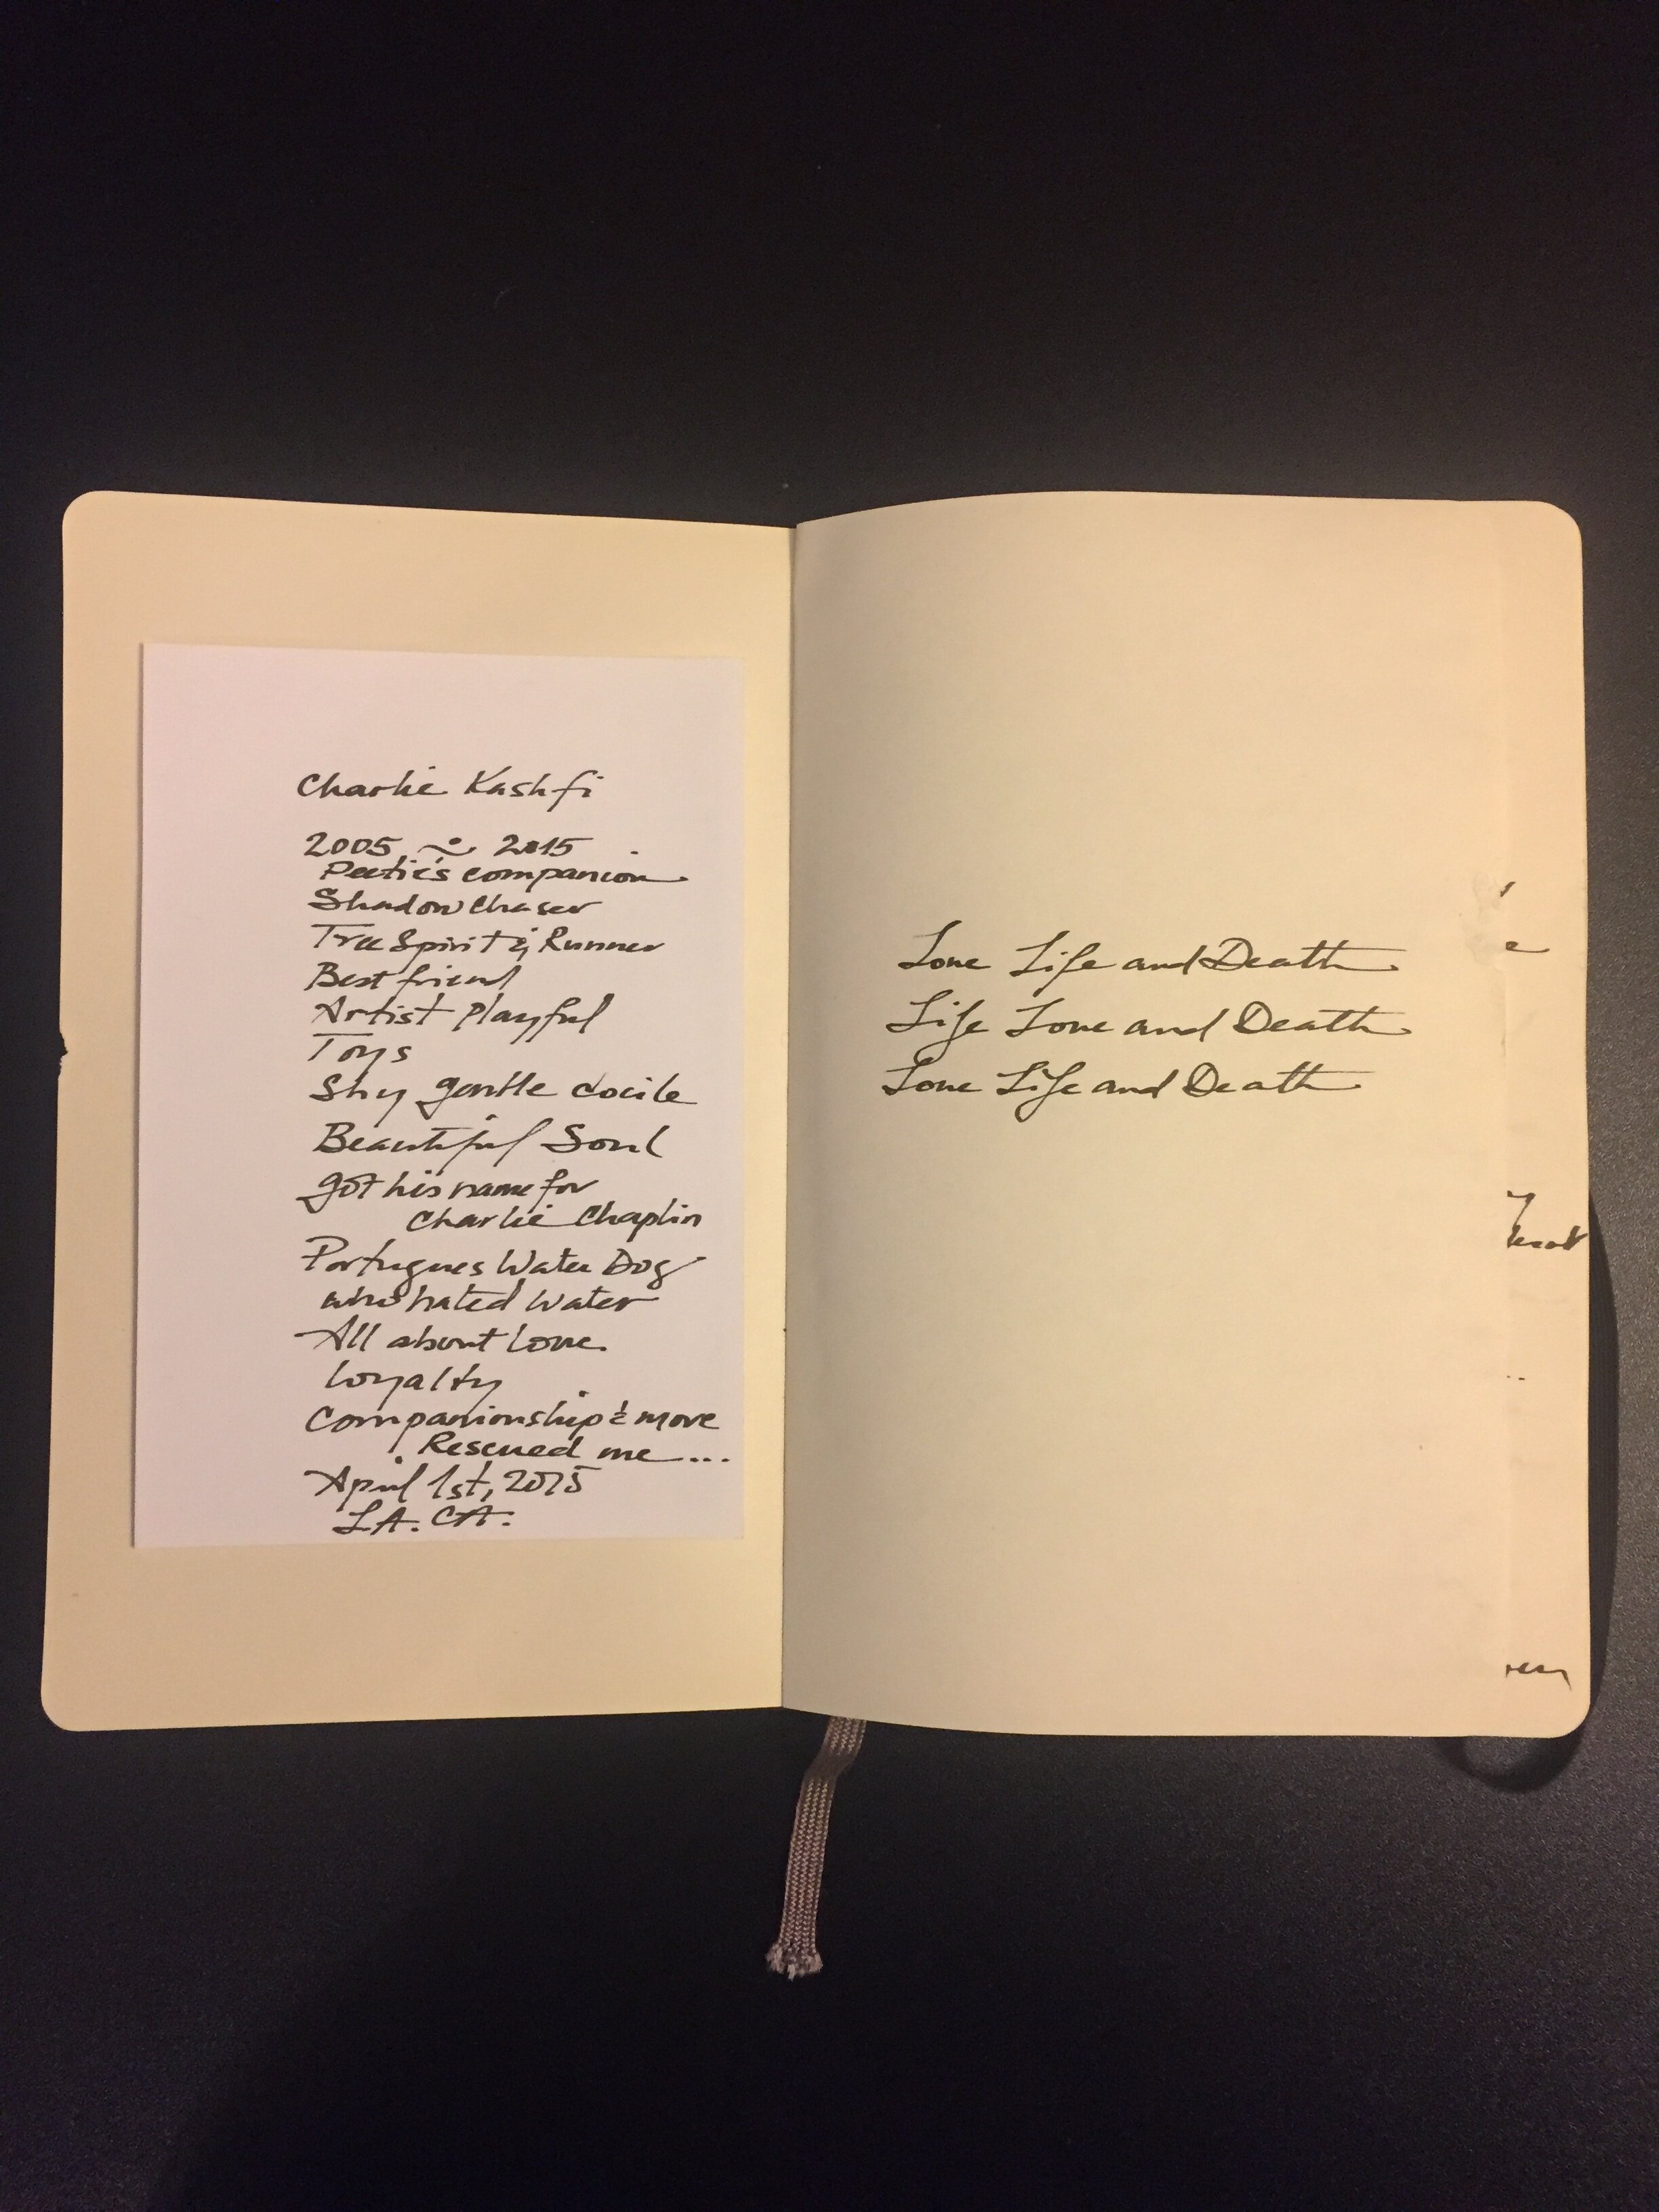 Charlie Kashfi
2005 ~ 2015
companion
Shadow Chaser
Tree Spirit & Runner
Best friend
Artist Playful
Toys
Shy gentle docile
Beautiful Soul
got his name for
Charlie Chaplin
Portugues Water Dog
who hated water
All about love
loyalty
Companionship & more
Rescued me...
April 1st, 2015
LA. CA.
Love Life and Death
Life Love and Death
Love Life and Death